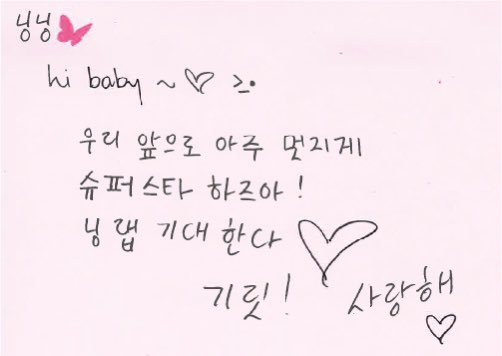 닝닝
hi baby ~♡ ≥.•
우리 앞으로 아주 멋지게
슈퍼스타 하즈아!
닝 랩 기대한다 ♡
기릿! 사랑해 ♡